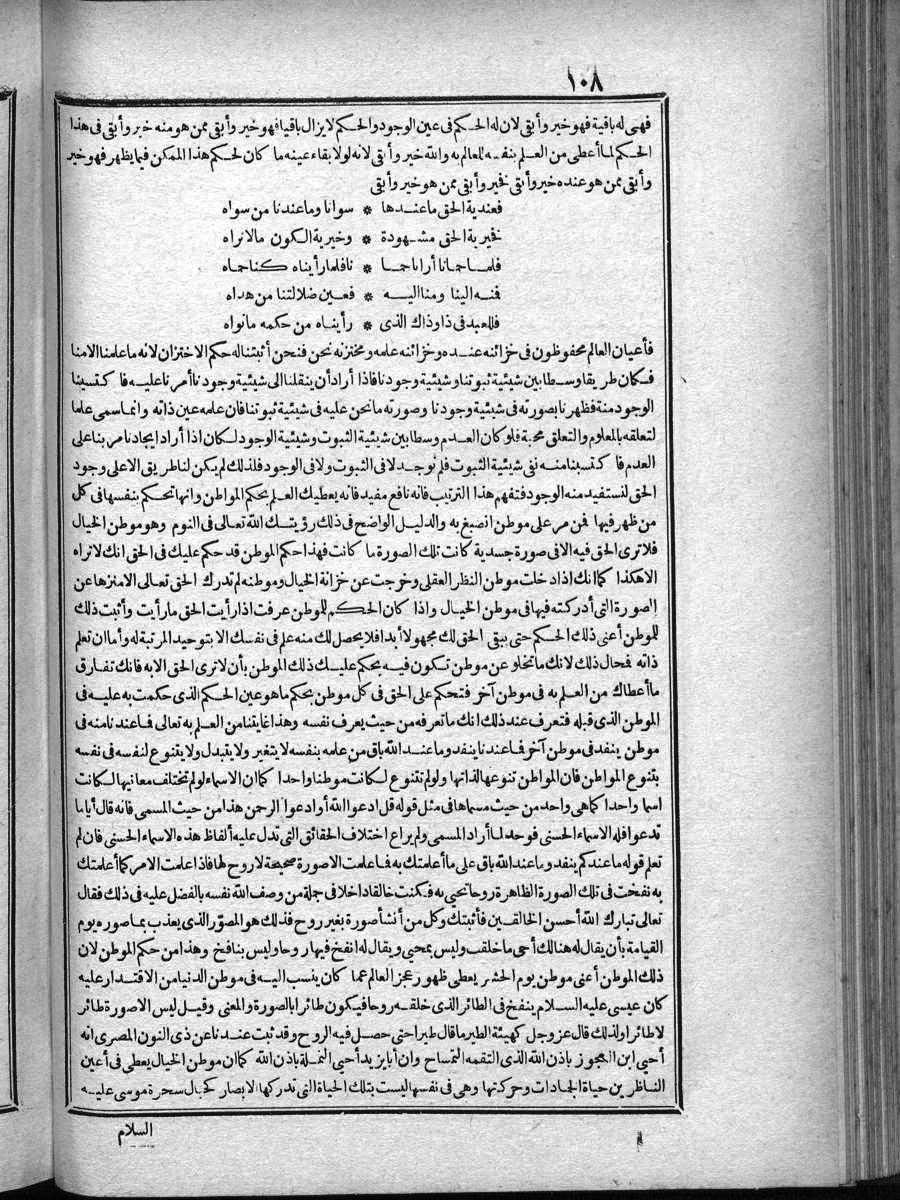 ١٠٨
فهى له باقية فهو خير وأبقى لان له الحكم فى عين الوجود والحكم لا يزال باقيا فهو خير وأبقى ممن هو منه خير وأبقى فى هذا
الحكم لما أعطى من العلم بنفسه للعالم به والله خير وأبقى لانه لولا بقاء عينه ما كان لحكم هذا الممكن فيما يظهر فهو خير
وأبقى ممن هو عنده خير وأبقى نخير وأبقى ممن هو خير وأبقى
فعندية الحق ما عندها * سوانا وما عندنا من سواه
فخيرية الحق مشهودة * وخيرية الكون ما لا نراه
فلما حمانا أرانا حما * نا فلما رأيناه كنا حماه
فمنه الينا ومنا اليه * فعين ضلالتنا من هداه
فللعبد فى ذا وذاك الذى * رأيناه من حكمه ما نواه
فأعيان العالم محفوظون فى خزائنه عنده وخزائنه علمه ومختزنه نحن فنحن أثبتنا له حكم الاختزان لانه ما علمنا الا منا
فكان طريقا وسطا بين شيئية ثبوتنا وشيئية وجودنا فاذا أراد أن ينقلنا الى شيئية وجودنا أمرنا عليه فاكتسبنا
الوجود منه فظهرنا بصورته فى شيئية وجودنا وصورته ما نحن عليه فى شيئية ثبوتنا فان علمه عين ذاته وانما سمى علما
لتعلقه بالمعلوم والتعلق محبة فلو كان العدم وسطا بين شيئية الثبوت وشيئية الوجود لكان اذا أراد ايجادنا مر بنا على
العدم فاكتسبنا منه نفى شيئية الثبوت فلم نوجد لا فى الثبوت ولا فى الوجود فلذلك لم يكن لنا طريق الا على وجود
الحق لنستفيد منه الوجود فتفهم هذا الترتيب فانه نافع مفيد فانه يعطيك العلم بحكم المواطن وانها تحكم بنفسها فى كل
من ظهر فيها فمن مر على موطن انصبغ به والدليل الواضح فى ذلك رؤيتك الله تعالى فى النوم وهو موطن الخيال
فلا ترى الحق فيه الا فى صورة جسدية كانت تلك الصورة ما كانت فهذا حكم الموطن قد حكم عليك فى الحق انك لا تراه
الا هكذا كما انك اذا دخلت موطن النظر العقلى وخرجت عن خزانة الخيال وموطنه لم تدرك الحق تعالى الا منزها عن
الصورة التى أدركته فيها فى موطن الخيال واذا كان الحكم للموطن عرفت اذا رأيت الحق ما رأيت وأثبت ذلك
للموطن أعنى ذلك الحكم حتى يبقى الحق لك مجهولا أبدا فلا يحصل لك منه علم فى نفسك الا بتوحيد المرتبة له وأما ان تعلم
ذاته فمحال ذلك لانك ما تخلو عن موطن تكون فيه يحكم عليك ذلك الموطن بأن لا ترى الحق الا به فانك تفارق
ما أعطاك من العلم به فى موطن آخر فتحكم على الحق فى كل موطن بحكم ما هو عين الحكم الذى حكمت به عليه فى
الموطن الذى قبله فتعرف عند ذلك انك ما تعرفه من حيث يعرف نفسه وهذا غايتنا من العلم به تعالى فما عندنا منه فى
موطن ينفد فى موطن آخر فما عندنا ينفد وما عند الله باق من علمه بنفسه لا يتغير ولا يتبدل ولا يتنوع لنفسه فى نفسه
بتنوع المواطن فان المواطن تنوعها لذاتها ولو لم تتنوع لكانت موطنا واحدا كما ان الاسماء لو لم تختلف معانيها لكانت
اسما واحدا كما هى واحد من حيث مسماها فى مثل قوله قل ادعوا الله أو ادعوا الرحمن هذا من حيث المسمى فانه قال أياما
تدعوا فله الاسماء الحسنى فوحد لما أراد المسمى ولم يراع اختلاف الحقائق التى تدل عليه ألفاظ هذه الاسماء الحسنى فان لم
تعلم قوله ما عندكم ينفد وما عند الله باق على ما أعلمتك به فما علمت الا صورة صحيحة لا روح لها فاذا علمت الامر كما أعلمتك
به نفخت فى تلك الصورة الظاهرة روحا تحيى به فكنت خالقا داخلا فى جملة من وصف الله نفسه بالفضل عليه فى ذلك فقال
تعالى تبارك الله أحسن الخالقين فأثبتك وكل من أنشأ صورة بغير روح فذلك هو المصوّر الذى يعذب بما صوره يوم
القيامة بأن يقال له هنالك أحى ما خلقت وليس بمحيى ويقال له انفخ فيها روحا وليس بنافخ وهذا من حكم الموطن لان
ذلك الموطن أعنى موطن يوم الحشر يعطى ظهور عجز العالم عما كان ينسب اليه فى موطن الدنيا من الاقتدار عليه
كان عيسى عليه السلام ينفخ فى الطائر الذى خلقه روحا فيكون طائرا بالصورة والمعنى وقيل ليس الا صورة طائر
لا طائر اولذلك قال عز وجل كهيئة الطير ما قال طيرا حتى حصل فيه الروح وقد ثبت عندنا عن ذى النون المصرى انه
أحيى ابن العجوز باذن الله الذى التقمه التمساح وان أبا يزيد أحيى النملة باذن الله كما ان موطن الخيال يعطى فى أعين
الناظرين حياة الجمادات وحركتها وهى فى نفسها ليست بتلك الحياة التى تدركها الابصار كحبال سحرة موسى عليه
السلام